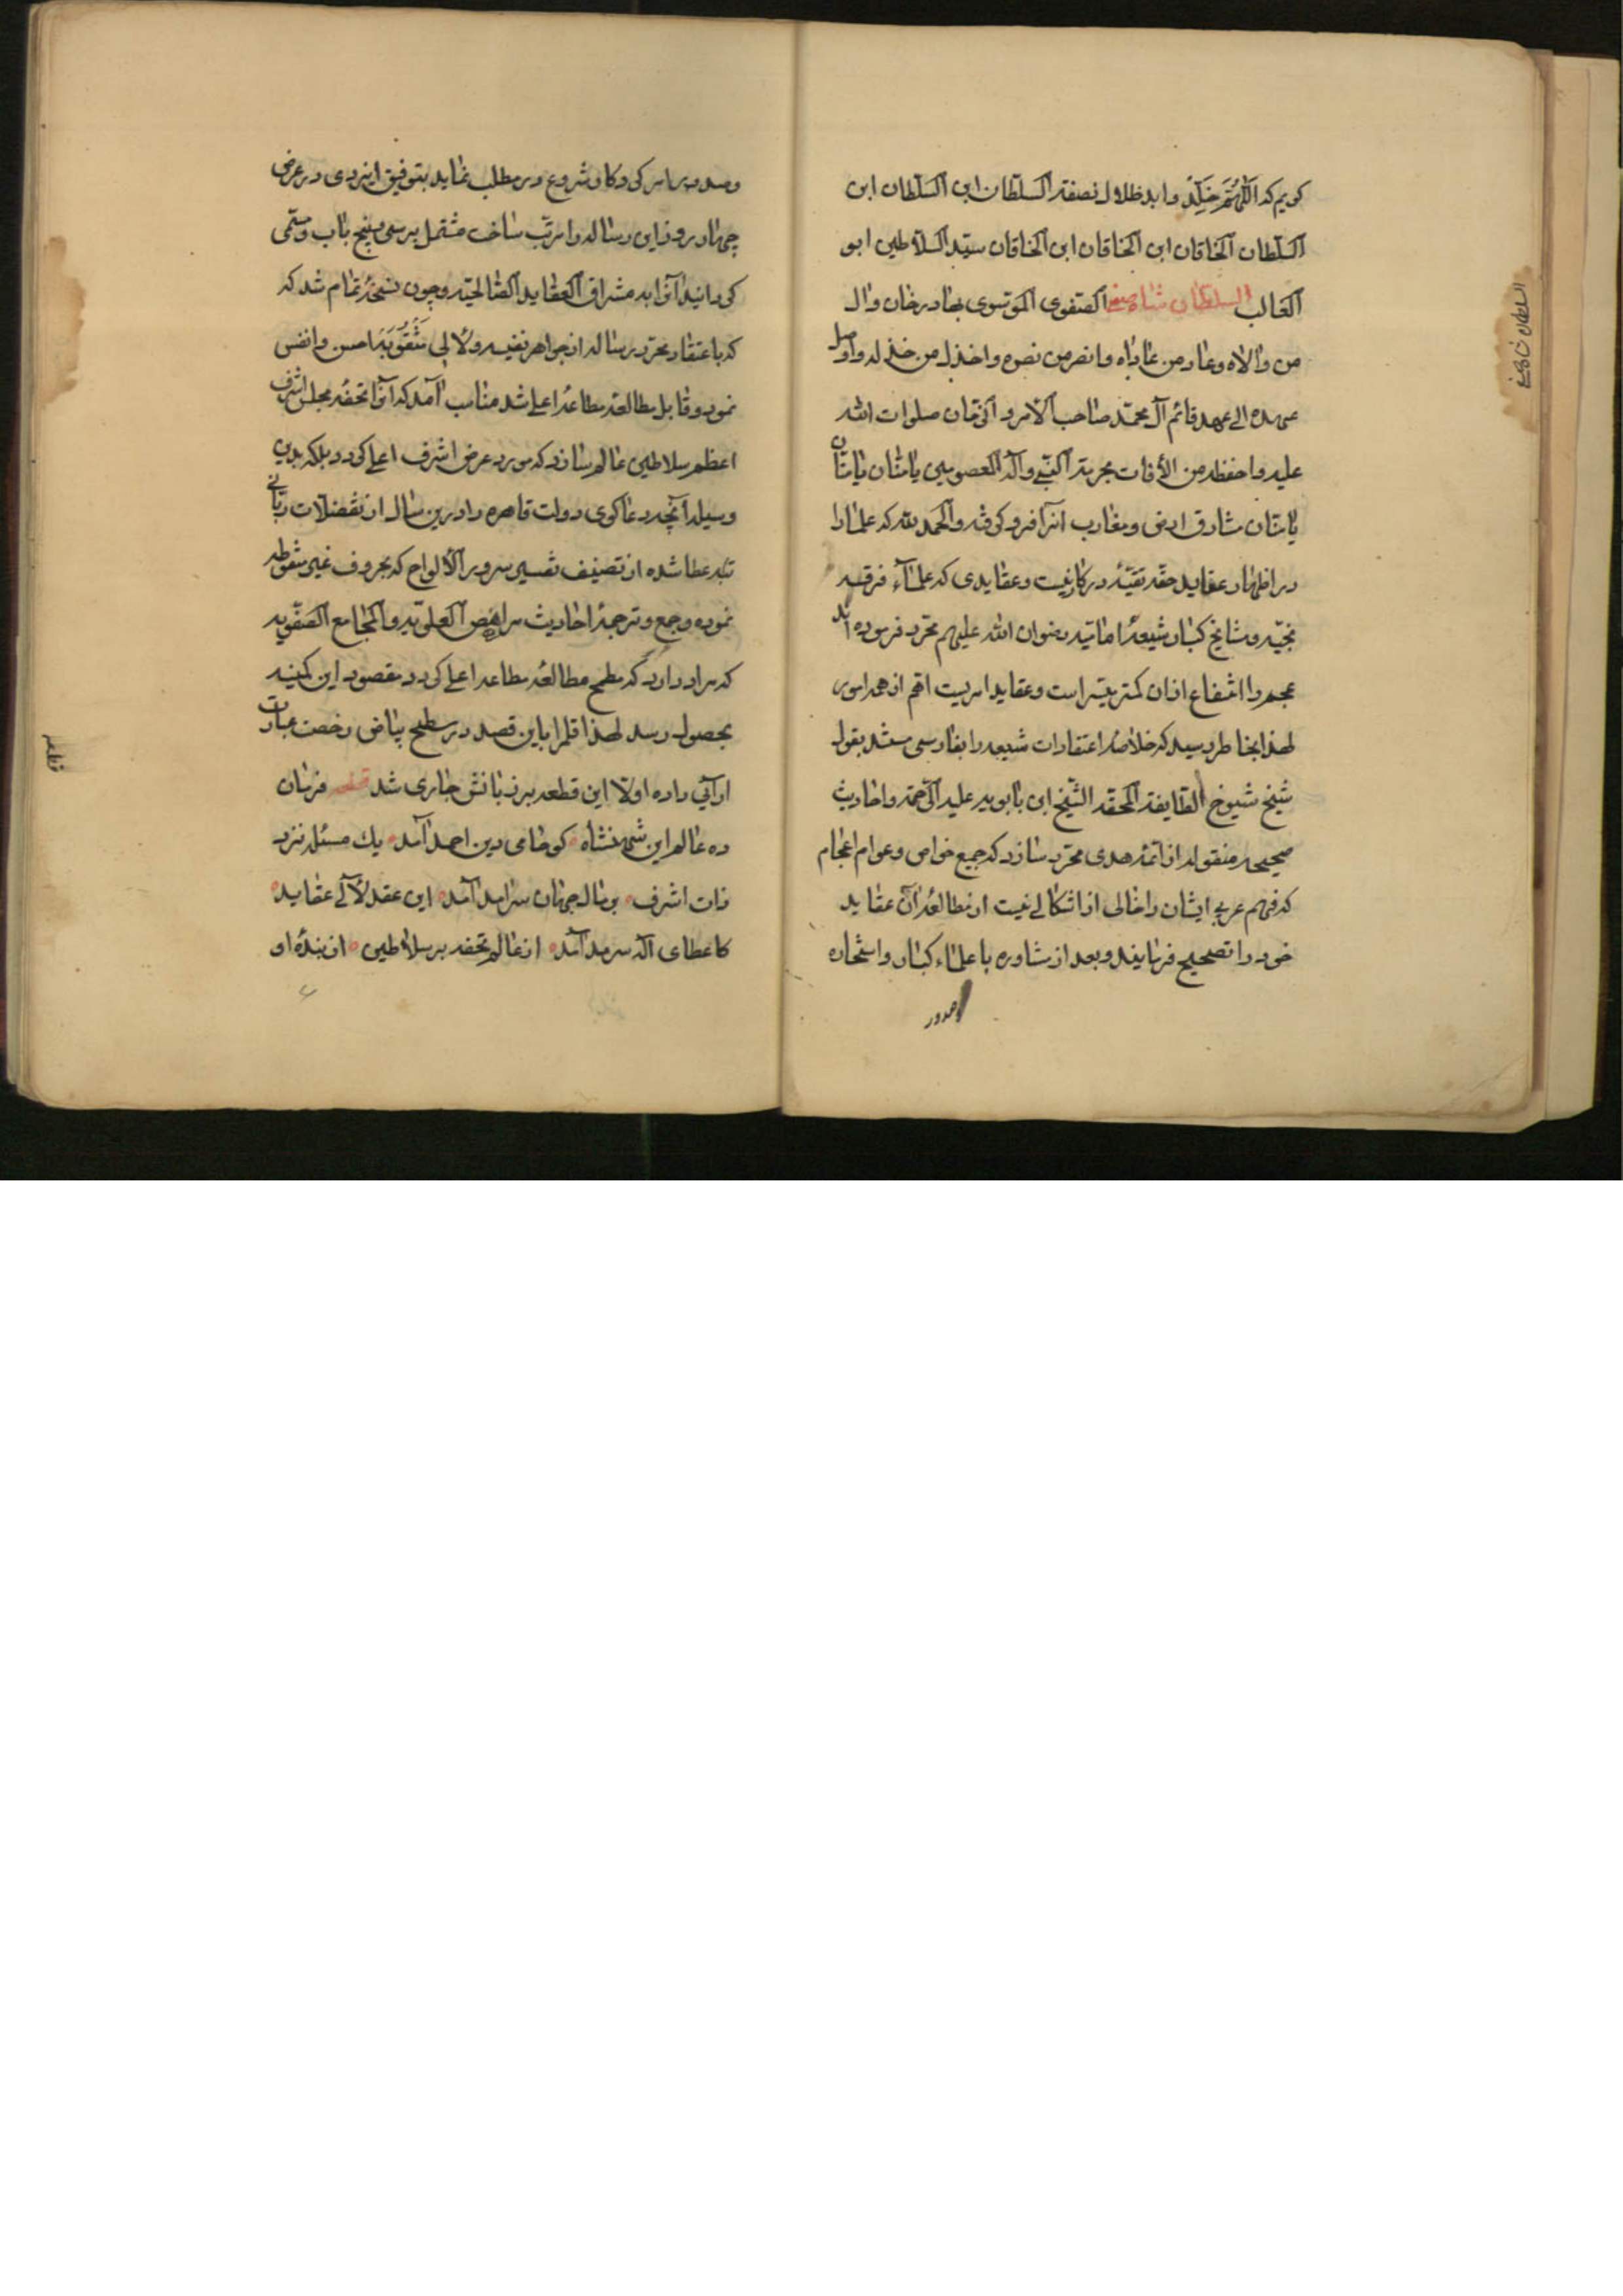 کویم که اللهم خلد وابد ظلال نصفة السلطان ابن السلطان ابن
السلطان الخاقان ابن الخاقان ابن الخاقان سید السلاطین ابو
الغالب السلطان شاه صفی الصفوی الموسوی بهادر خان وال
من والاه وعاد من عاداه وانصر من نصره واخذل من خذله واوصل
عهده الی عهد قائم آل محمد صاحب الامر و الزمان صلوات الله
علیه واحفظه من الآفات بحرمة النبی وآله المعصومین
مشارق ارض ومغارب والحمد لله که علما را
در اظهار عقاید حقه تقیّهٔ در کار نیست وعقایدی که علمآء فرقه
ناجیّه و مشایخ کبار شیعهٔ امامیّه رضوان الله علیهم محرّر فرموده اند
عجم را انتفاع ازان کمتر میسّر است وعقاید امریست اهم از همه امور
لهذا بخاطر رسید که خلاصهٔ اعتقادات شیعه را بفارسی مستند بقول
شیخ شیوخ الطایفة المحقه الشیخ ابن بابویه علیه الرّحمة واحادیث
صحیحه منقوله از ائمّه هدی محرّر سازد که جمیع خواص وعوام اعجام
که فهم عربی ایشان را خالی از اشکالی نیست از مطالعهٔ آن عقاید
خود را تصحیح فرمایند و بعد از مشاوره با علماء کبار واستخاره
وصدور
وصدور شروع در مطلب نماید بتوفیق ایزدی در عرض
چهار روز این رساله را مرتب ساخت مشتمل بر سی وپنج باب ومسمّی
کردانید آنرا به مشراق العقاید الصالحیّه و چون نسخهٔ تمام شد که
که باعتقاد محرّر رساله از جواهر نفیسه ولآلی مثقوبه احسن وانفس
نمود و قابل مطالعه مطاعهٔ اعلی شد مناسب آمد که آنرا تحفهٔ مجلس اشرف
اعظم سلاطین عالم سازد که مورد عرض اشرف اعلی کردد بلکه بدین
وسیله آنچه دعاکوی دولت قاهره را درین سال از تفضّلات ربّانی
عطا شده از تصنیف تفسیر سرور الالواح که بحروف غیر منقوطه
نموده وجمع و ترجمهٔ احادیث العلویّه والمجامع الصفویه
که مراد دارد که مطمح مطالعهٔ مطاعه اعلی کردد مقصود این کمینه
بحصول رسد لهذا قلم را باین قصد در سطح بیاض رخصت عبارت
آرائی داده اوّلا این قطعه بر زبانش جاری شد قطعه فرمان
ده عالم این شهنشاه کو حامی دین احمد آمد یک مسئله نزد
ذات اشرف به مال جهان سرآمد آمد این عقد لآلی عقاید
کاعطای اله سرمد آمد از عالم تحفه بر سلاطین از بندهٔ او
السلطان شاه صفی